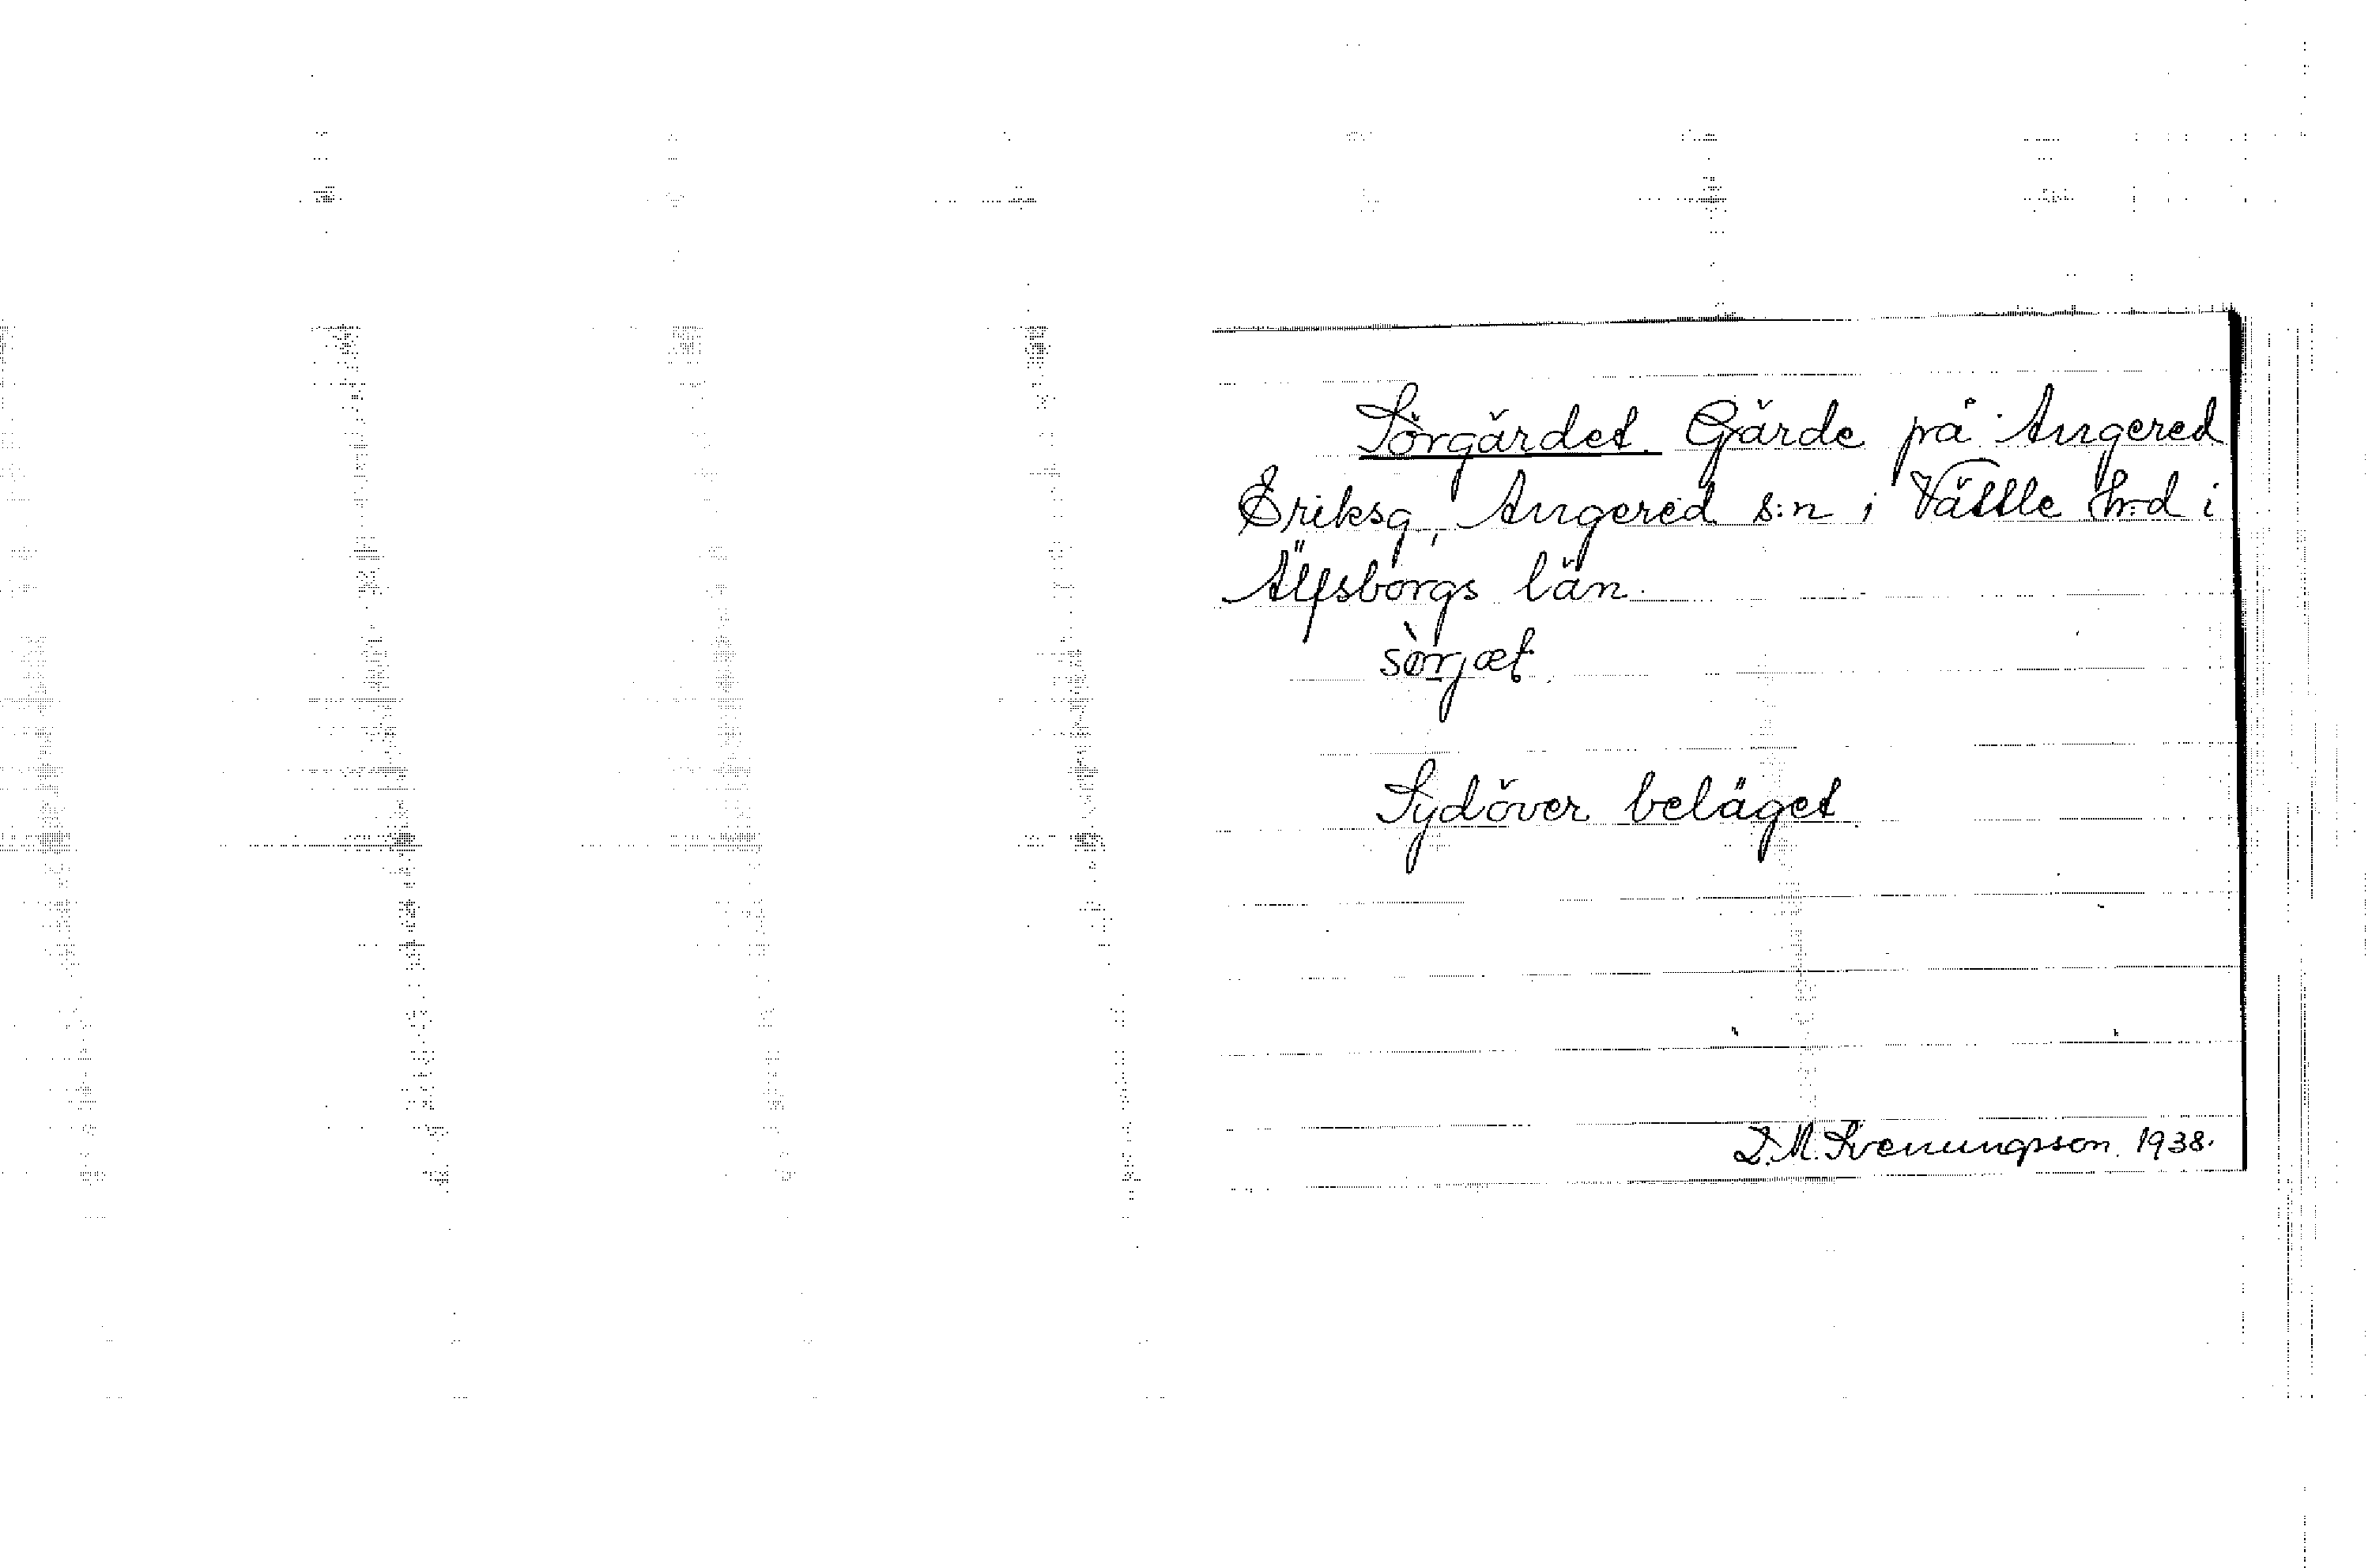 Sörgärdet. Gärde på Angered
Eriksg, Angered s:n i Vättle h:d i
Älfsborgs län.
sörjæt.
Sydöver beläget.
D.M. Svenungsson. 1938.